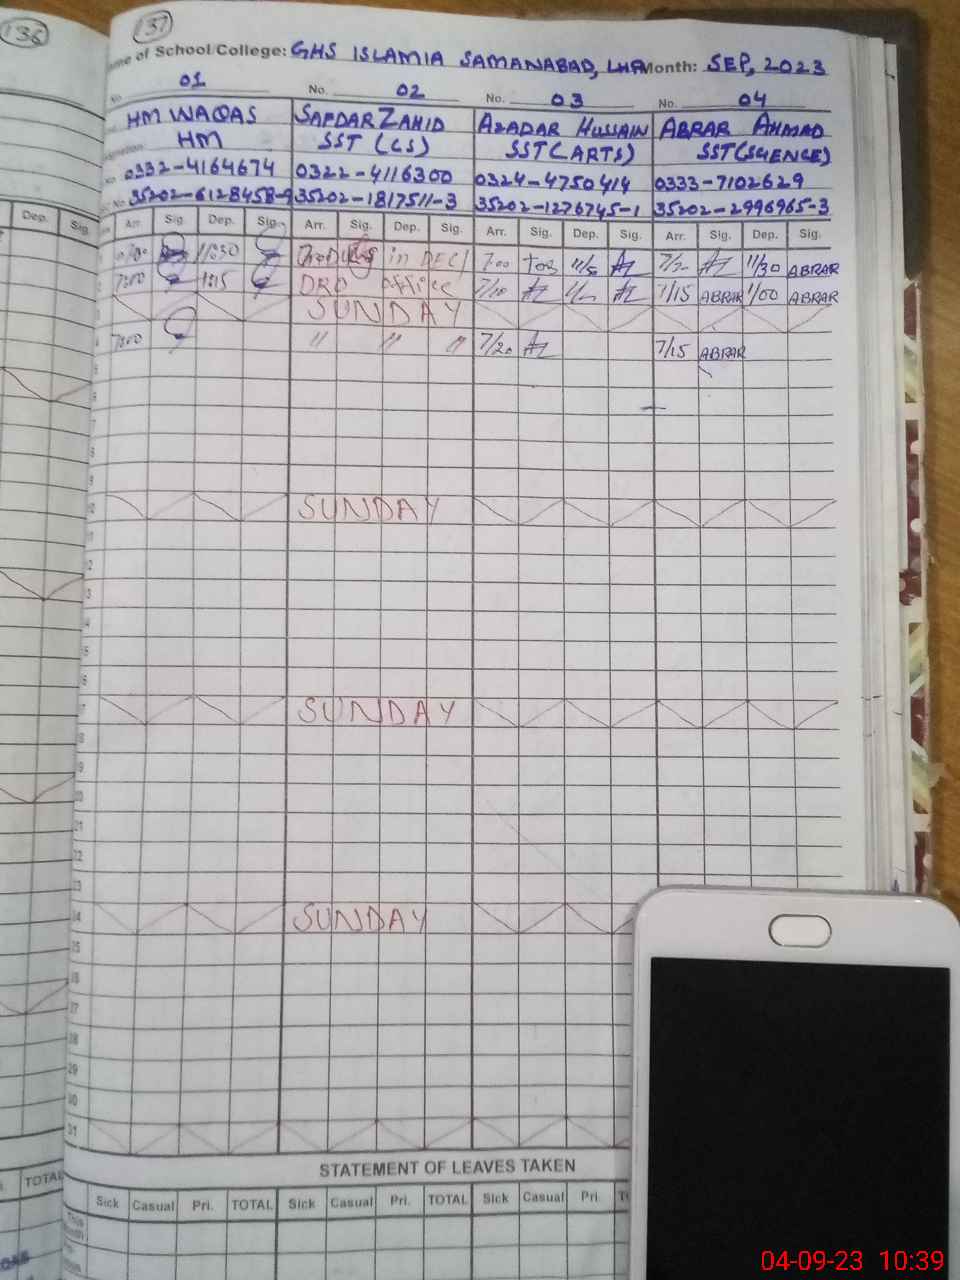 136
137
Name of School/College: GHS ISLAMIA SAMANABAD, LHR Month: SEP, 2023
No. 01 No. 02 No. 03 No. 04
HM WAQAS SAFDAR ZAHID AZADAR HUSSAIN ABRAR AHMAD
HM SST (CS) SST (ARTS) SST (SCIENCE)
0332-4164674 0322-4116300 0324-4750414 0333-7102629
35202-6128458-9 35202-1817511-3 35202-1276745-1 35202-2996965-3
Dep. Sig. Arr. Sig. Dep. Sig. Arr. Sig. Dep. Sig. Arr. Sig. Dep. Sig. Arr. Sig. Dep. Sig.
11:30 in 7:00 11/30 ABRAR
7:00 1:15 DRO office 7/10 7/15 ABRAR 1/00 ABRAR
SUNDAY
7:00 " " " 7/20 7/15 ABRAR
5
6
7
8
9
10 SUNDAY
11
12
13
14
15
16
17 SUNDAY
18
19
20
21
22
23
24 SUNDAY
25
26
27
28
29
30
31
STATEMENT OF LEAVES TAKEN
TOTAL Sick Casual Pri. TOTAL Sick Casual Pri. TOTAL Sick Casual Pri.
This Month
04-09-23 10:39